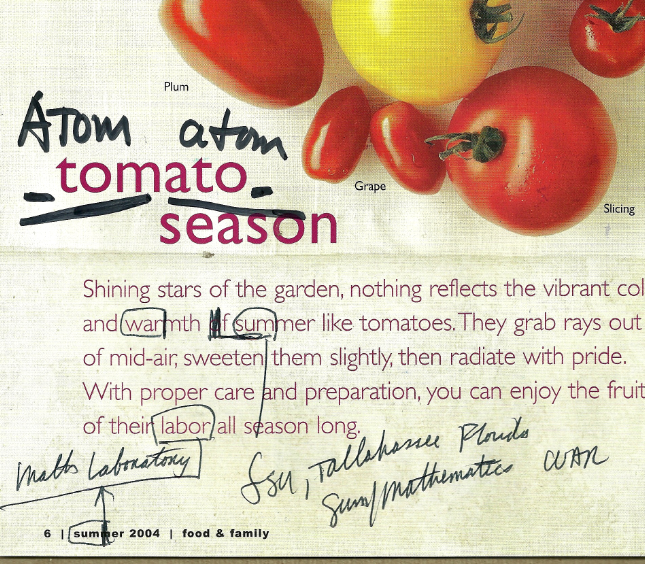 Plum
Atom atom
Grape
tomato
Slicing
season
Shining stars of the garden, nothing reflects the vibrant col
and warmth of summer like tomatoes. They grab rays out
of mid-air, sweeten them slightly, then radiate with pride.
With proper care and preparation, you can enjoy the fruit
of their labor all season long.
Maths Laboratory
fsu, Tallahassee Florida
Sum/Mathematics WAR
6 | summer 2004 | food & family